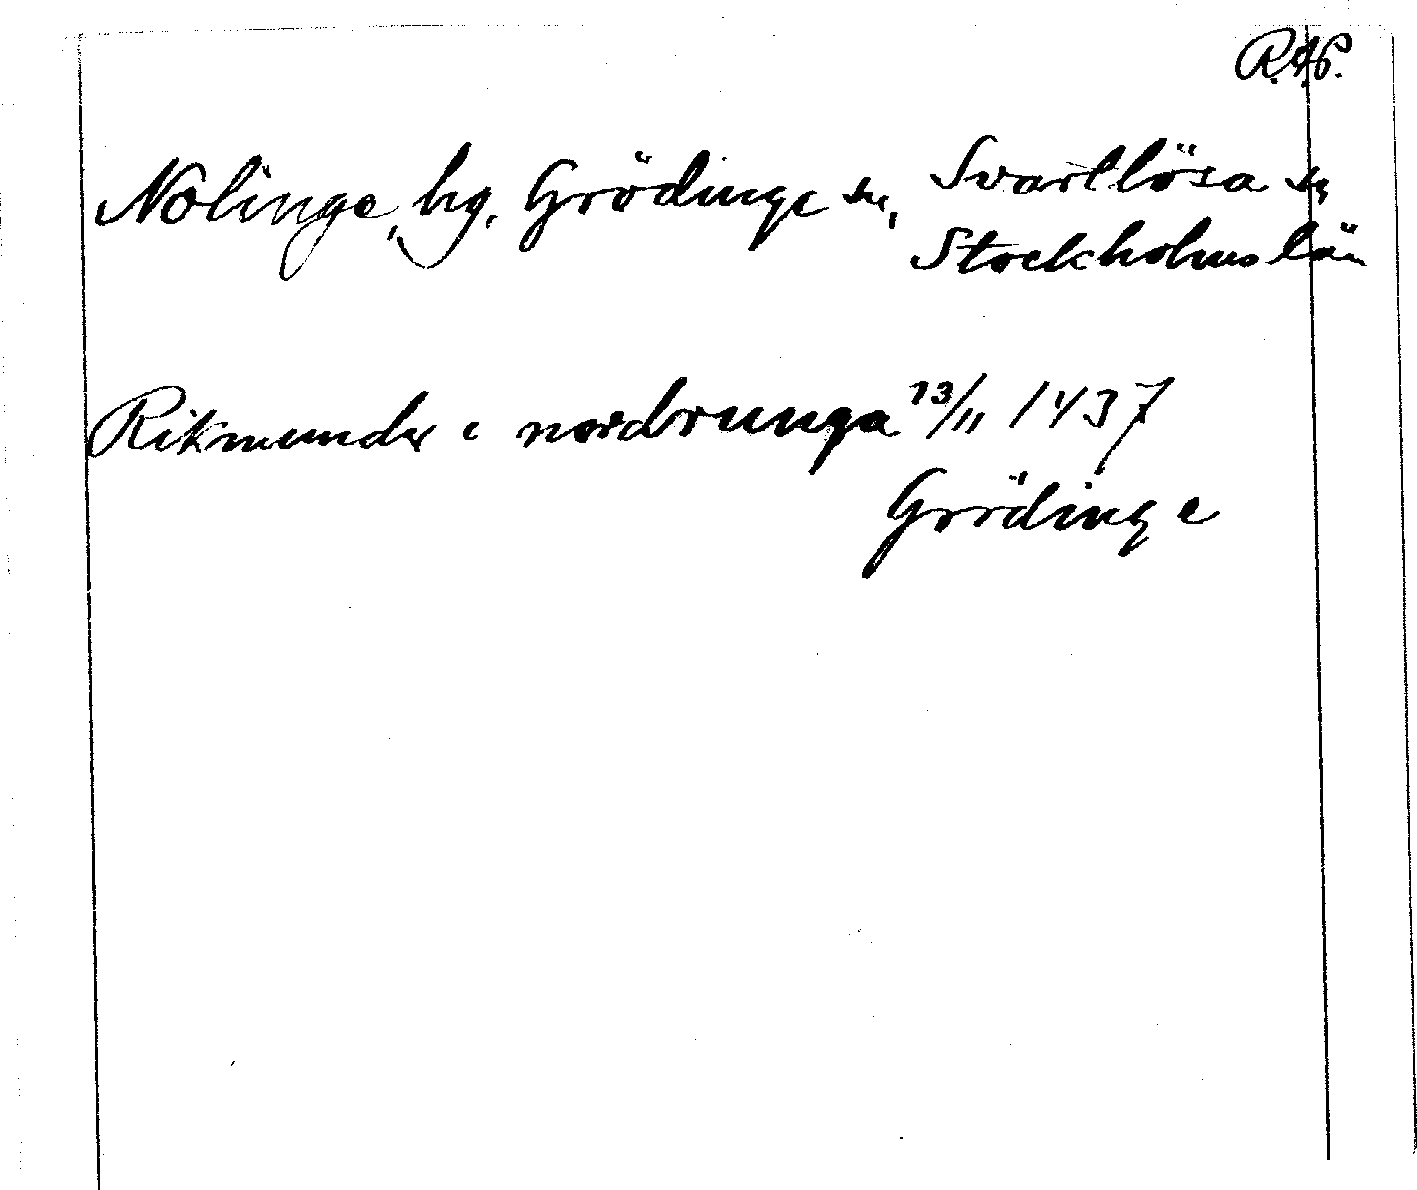 R.A.P.
Nolinge, hg, Grödinge sn, Svartlösa sn
Stockholms län
Rikmunder i nordrunga 13/11 1437
Grödinge